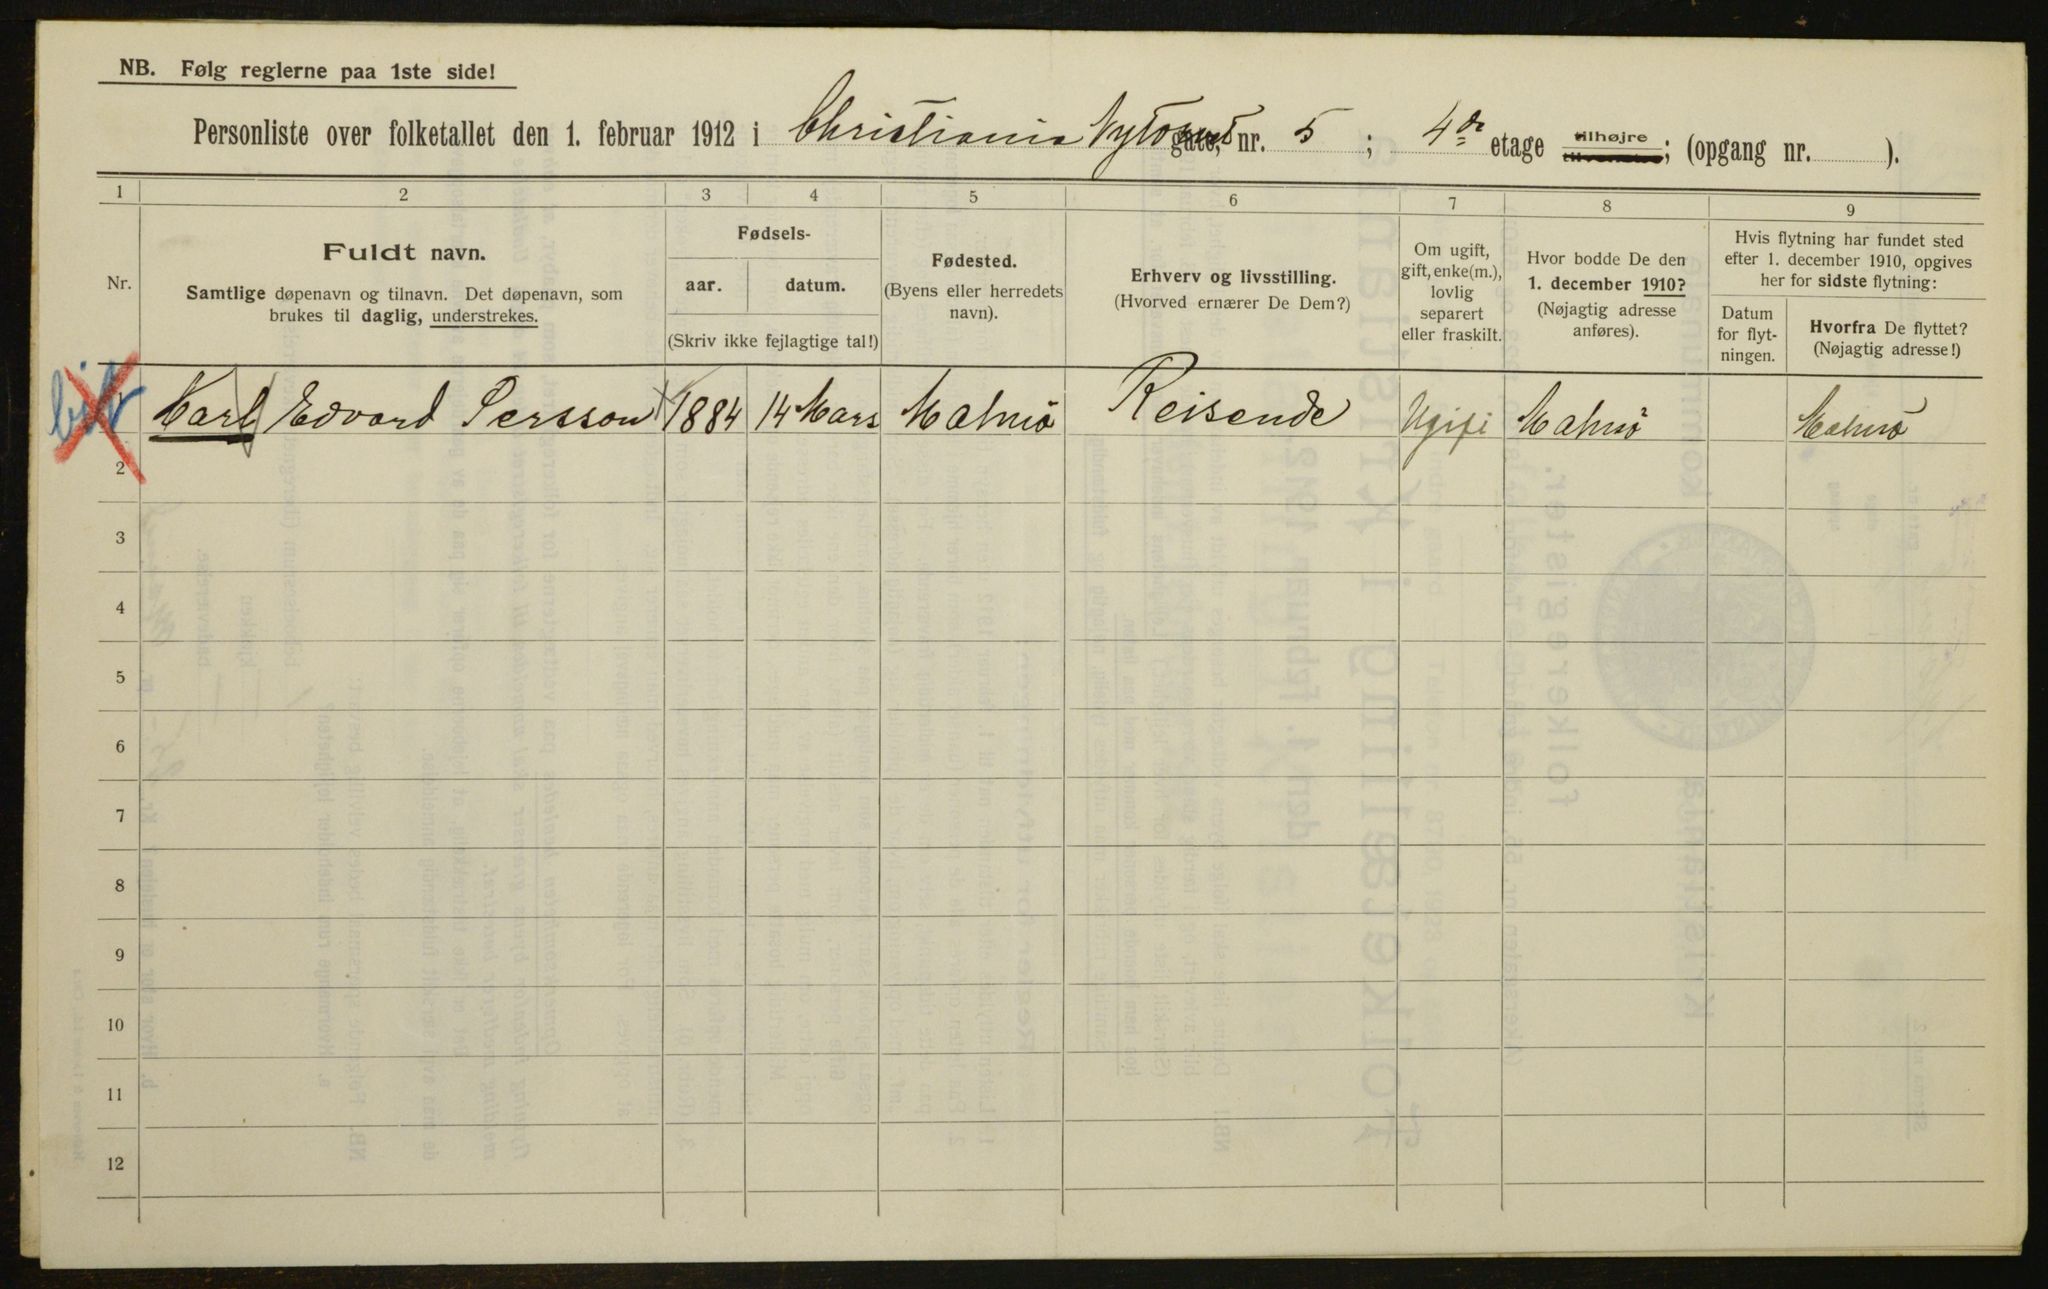 NB. Følg reglerne paa 1ste side!
Personliste over folketallet den 1. februar 1912 i Christiania Nytorvet gate, nr. 5 ; 4de etage tilhøjre tilvenstre; (opgang nr. ).
1 2 3 4 5 6 7 8 9
Nr.
Fuldt navn.
Samtlige døpenavn og tilnavn. Det døpenavn, som
brukes til daglig, understrekes.
Fødsels-
aar. datum.
(Skriv ikke fejlagtige tal!)
Fødested.
(Byens eller herredets
navn).
Erhverv og livsstilling.
(Hvorved ernærer De Dem?)
Om ugift,
gift, enke(m.),
lovlig
separert
eller fraskilt.
Hvor bodde De den
1. december 1910?
(Nøjagtig adresse
anføres).
Hvis flytning har fundet sted
efter 1. december 1910, opgives
her for sidste flytning:
Datum
for flyt-
ningen.
Hvorfra De flyttet?
(Nøjagtig adresse!)
1 Karl Edvard Persson 1884 14 Mars Malmö Reisende Ugift Malmö Malmö
2
3
4
5
6
7
8
9
10
11
12